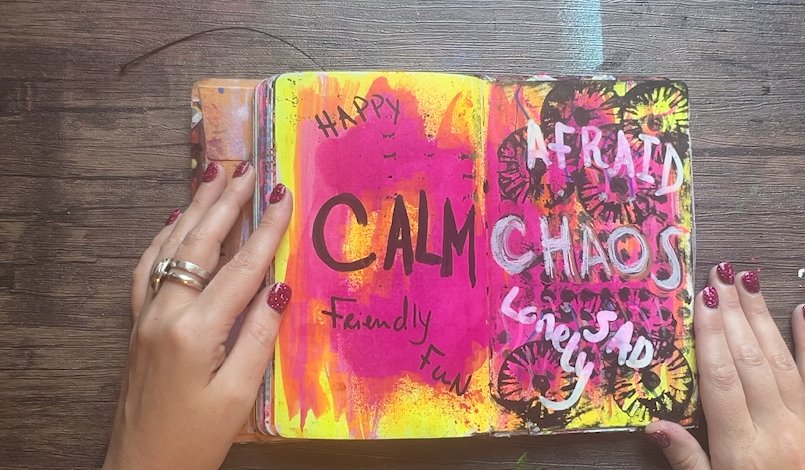 HAPPY
CALM
Friendly
FUN
AFRAID
CHAOS
Lonely
SAD